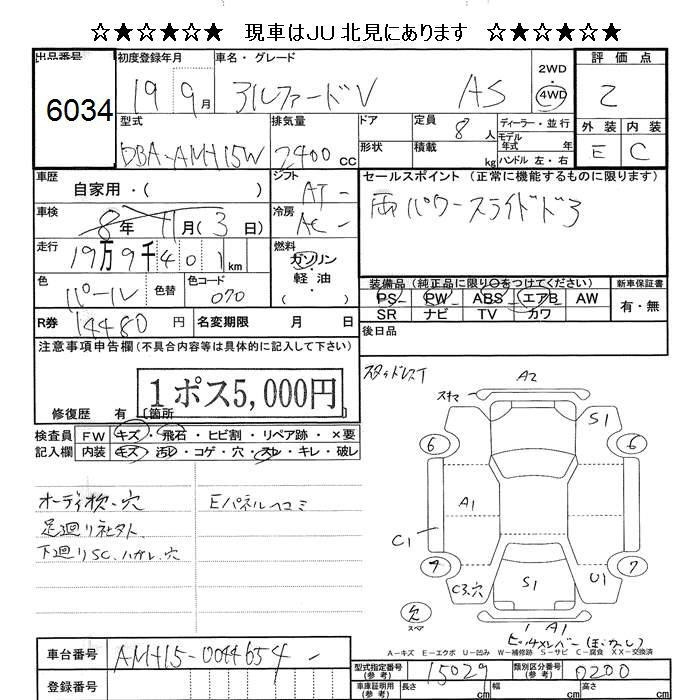 ☆★☆★☆★ 現車はJU北見にあります ☆★☆★☆★
出品番号 初度登録年月 車名・グレード 2WD 4WD 評価点
6034 19 9月 アルファードV AS 2
型式 排気量 ドア 定員 8人 ディーラー・並行 外装 内装
DBA-AMH15W 2400cc 形状 積載 kg モデル年式 年 ハンドル 左・右 E C
車歴 シフト セールスポイント (正常に機能するものに限ります)
自家用・( ) AT- 両パワースライドドア
車検 冷房
8年 11月(3日) AC-
走行 燃料
19万9千401km ガソリン
色 色替 色コード 軽油
パール 070 ( )
装備品 (純正品に限り○をつけてください) 新車保証書
PS PW ABS エアB AW 有・無
SR ナビ TV カワ
R券 14480円 名変期限 月 日 後日品
注意事項申告欄(不具合内容等は具体的に記入して下さい)
スタッドレスT
1ポス5,000円
修復歴 有 [箇所 ]
検査員 FW キズ・飛石・ヒビ割・リペア跡・×要
記入欄 内装 キズ・汚レ・コゲ・穴・スレ・キレ・破レ
オーディオ欠・穴 Eパネルヘコミ
足廻り社外
下廻りSC.ハガレ.穴
A2
スキマ
S1
6 6
A1
C1
9 7
C3.穴 S1 U1
欠
スペア
1 A1
A-キズ E-エクボ U-凹み W-補修跡 S-サビ C-腐食 XX-交換済
車台番号 AMH15-0044654-
登録番号
型式指定番号(参考) 15029 類別区分番号(参考) 0200
車庫証明用(参考) 長さ cm 幅 cm 高さ cm